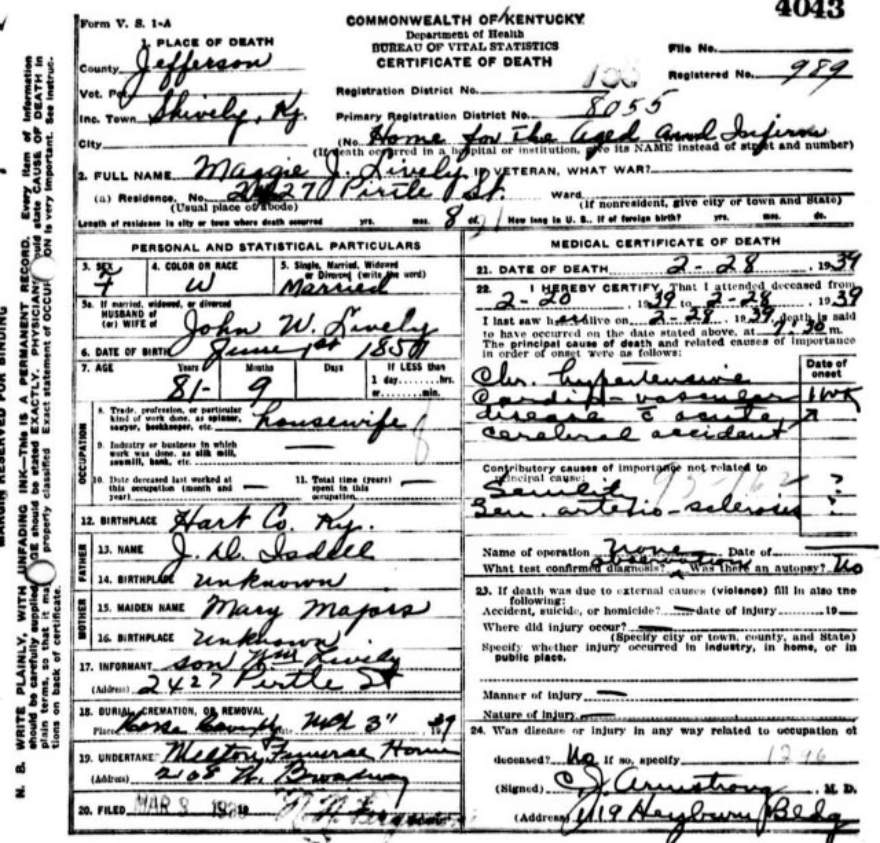 4043
Form V. S. 1-A
COMMONWEALTH OF KENTUCKY
Department of Health
BUREAU OF VITAL STATISTICS
CERTIFICATE OF DEATH
File No.
Registered No. 989
1. PLACE OF DEATH
County Jefferson
Vot. Pct.
Inc. Town Shively, Ky.
City
Registration District No.
Primary Registration District No. 8055
(No. Home for the Aged and Infirm
(If death occurred in a hospital or institution, give its NAME instead of street and number)
2. FULL NAME Maggie J. Lively IF VETERAN, WHAT WAR?
(a) Residence. No. 2427 Pirtle St. Ward
(Usual place of abode) (If nonresident, give city or town and State)
Length of residence in city or town where death occurred yrs. mos. 8 ds. How long in U. S., if of foreign birth? yrs. mos. ds.
PERSONAL AND STATISTICAL PARTICULARS
3. SEX F
4. COLOR OR RACE W
5. Single, Married, Widowed or Divorced (write the word) Married
5a. If married, widowed, or divorced
HUSBAND of
(or) WIFE of John W. Lively
6. DATE OF BIRTH June 1st
7. AGE Years 81- Months 9 Days If LESS than
1 day........hrs.
or........min.
OCCUPATION
8. Trade, profession, or particular kind of work done, as spinner, sawyer, bookkeeper, etc. housewife
9. Industry or business in which work was done, as silk mill, sawmill, bank, etc. —
10. Date deceased last worked at this occupation (month and year) —
11. Total time (years) spent in this occupation —
12. BIRTHPLACE Hart Co. Ky.
FATHER
13. NAME J. D.
14. BIRTHPLACE unknown
MOTHER
15. MAIDEN NAME Mary Majors
16. BIRTHPLACE unknown
17. INFORMANT son Wm Lively
(Address) 2427 Pirtle St
18. BURIAL, CREMATION, OR REMOVAL
Place Date Mch 3" 1939
19. UNDERTAKER Funeral Home
(Address) W. Broadway
20. FILED MAR 3
MEDICAL CERTIFICATE OF DEATH
21. DATE OF DEATH 2-28, 1939
22. I HEREBY CERTIFY, That I attended deceased from
2-20, 1939 to 2-28, 1939
I last saw her alive on 2-28, 1939, death is said
to have occurred on the date stated above, at m.
The principal cause of death and related causes of importance
in order of onset were as follows:
Date of onset
Chr. hypertensive
Cardio-vascular 1 wk
disease c̄ acute
cerebral accident
Contributory causes of importance not related to
principal cause:
Senility ?
Gen. arterio-sclerosis ?
Name of operation None Date of
What test confirmed diagnosis? observation Was there an autopsy? No
23. If death was due to external causes (violence) fill in also the
following:
Accident, suicide, or homicide? — date of injury 19
Where did injury occur? —
(Specify city or town, county, and State)
Specify whether injury occurred in industry, in home, or in
public place.
Manner of injury —
Nature of injury —
24. Was disease or injury in any way related to occupation of
deceased? No If so, specify 1246
(Signed) C. J. Armstrong, M. D.
(Address) 1119 Heyburn Bldg
MARGIN RESERVED FOR BINDING
N. B. WRITE PLAINLY, WITH UNFADING INK—THIS IS A PERMANENT RECORD. Every item of information
should be carefully supplied. AGE should be stated EXACTLY. PHYSICIANS should state CAUSE OF DEATH in
plain terms, so that it may be properly classified. Exact statement of OCCUPATION is very important. See instruc-
tions on back of certificate.